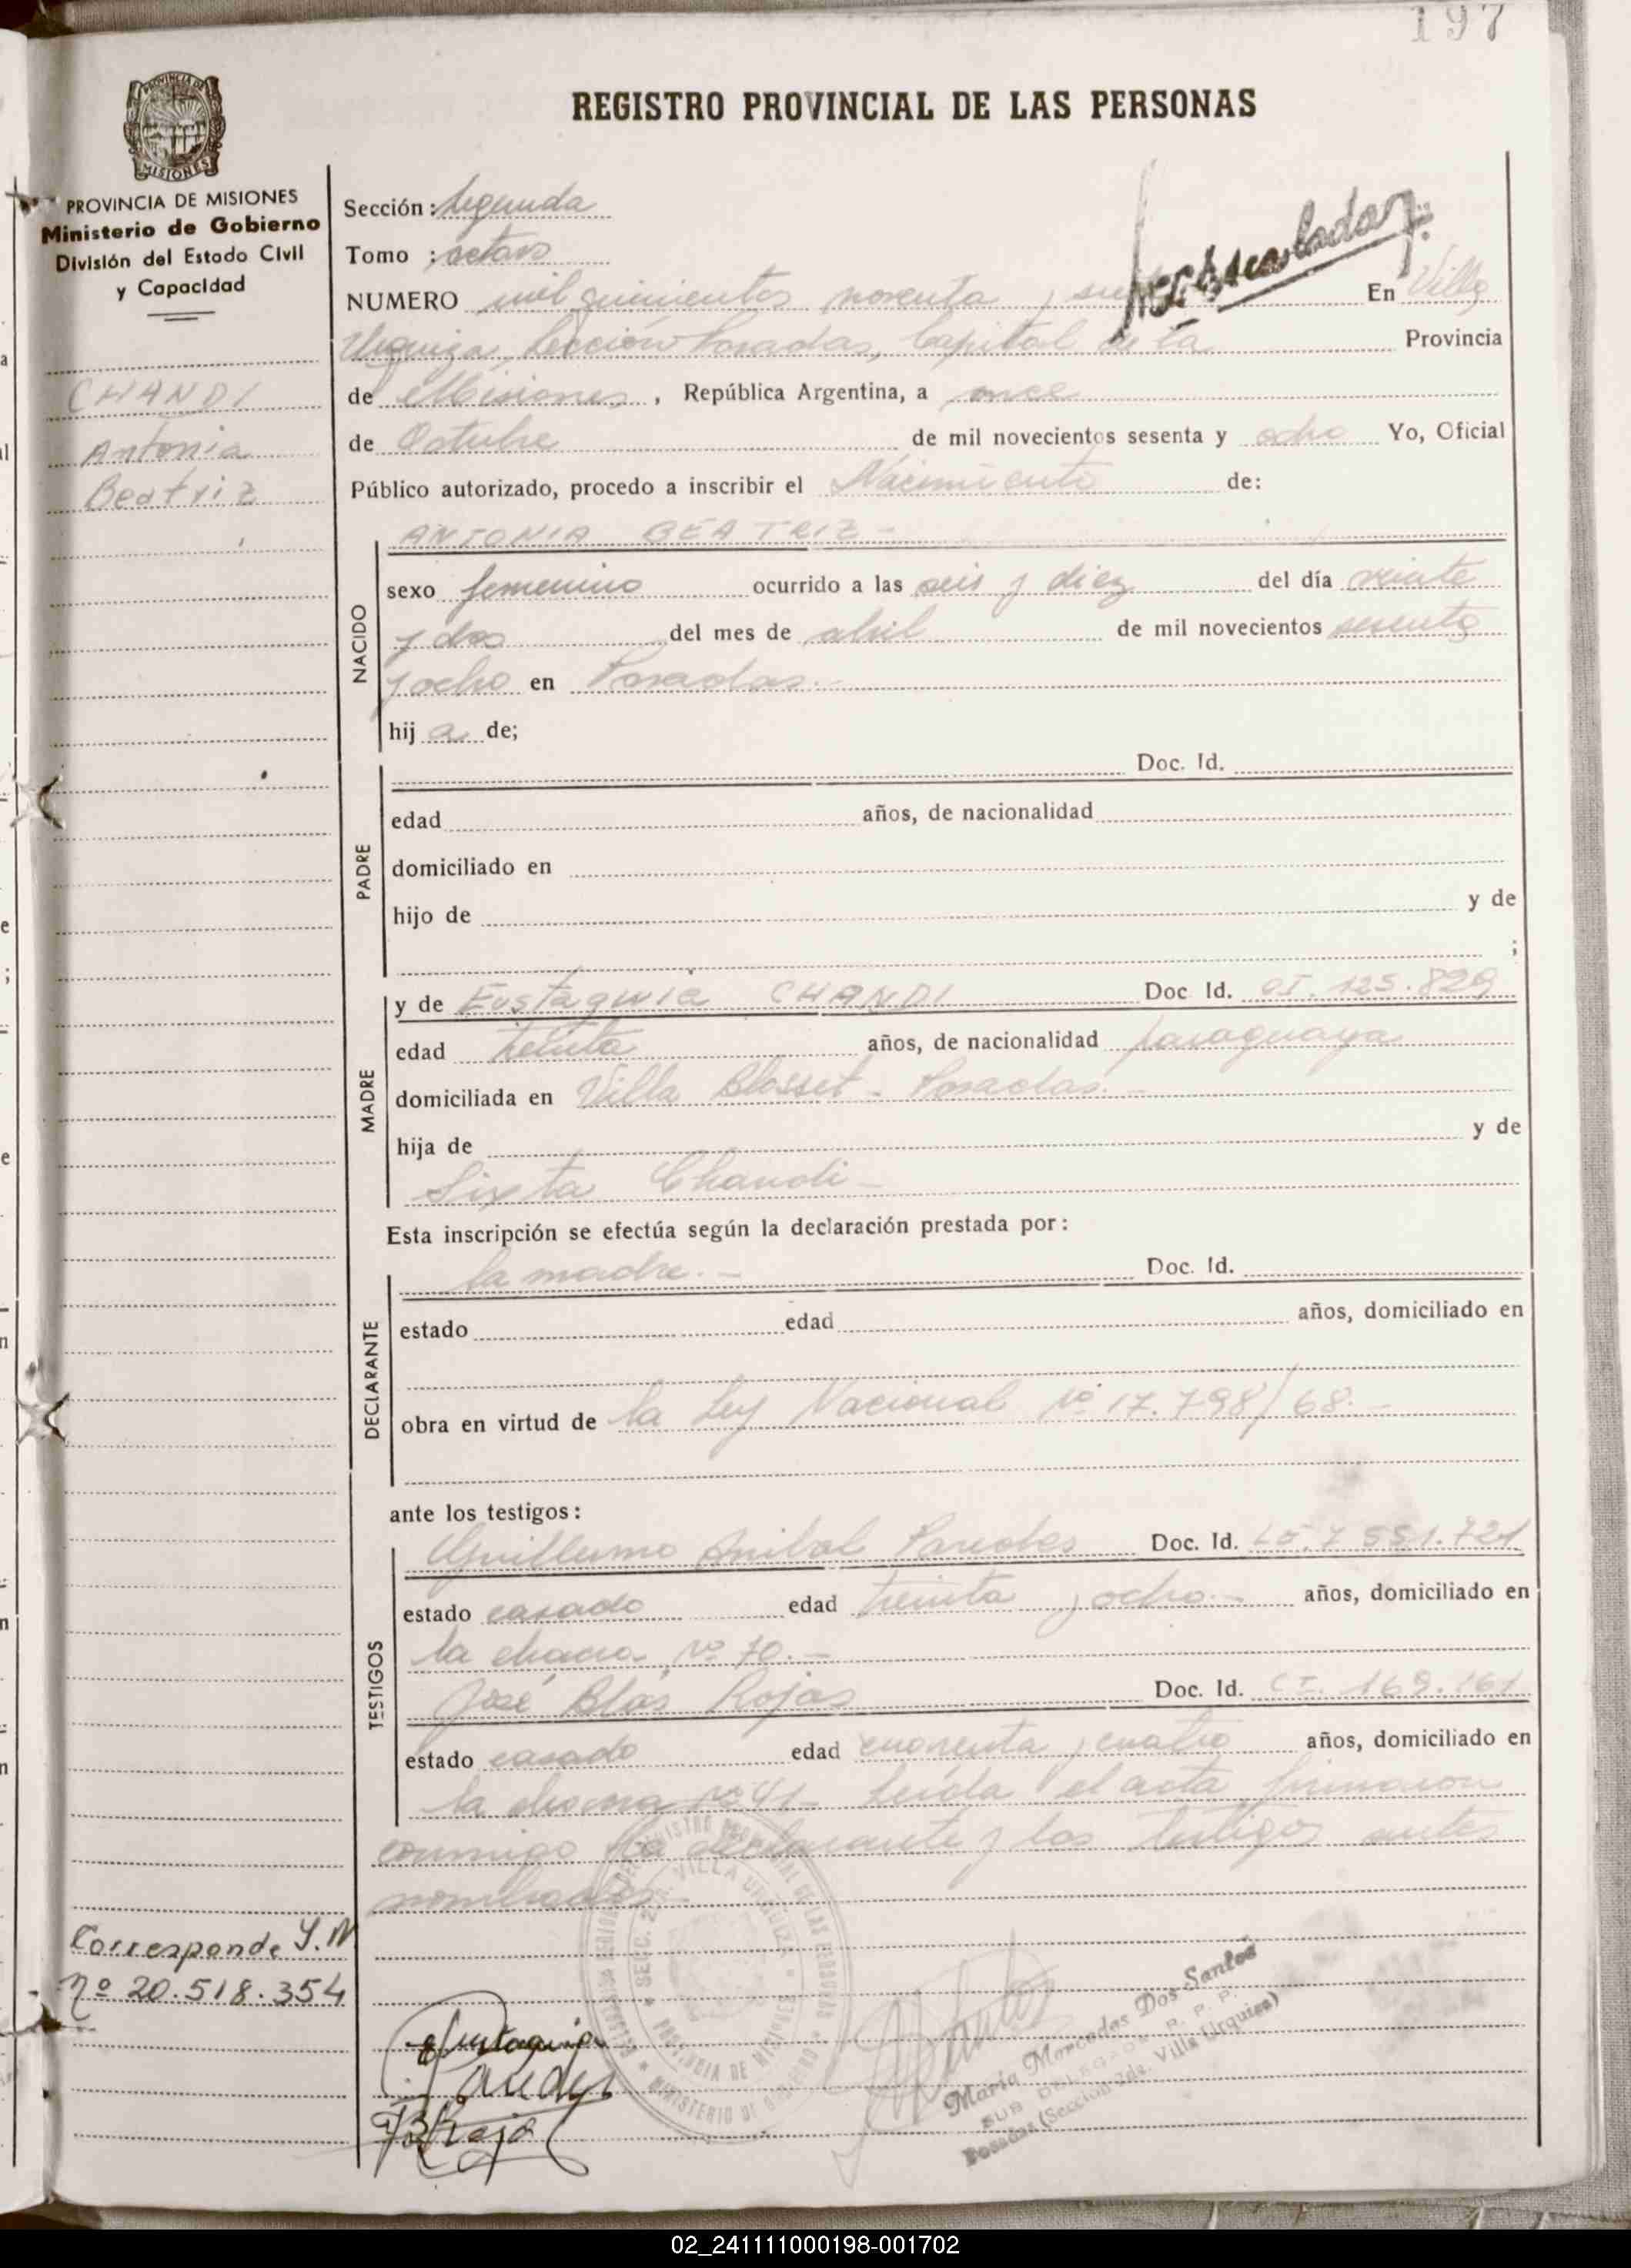 197
PROVINCIA DE MISIONES
REGISTRO PROVINCIAL DE LAS PERSONAS
PROVINCIA DE MISIONES
Ministerio de Gobierno
División del Estado Civil
y Capacidad
CHANDI
Antonia
Beatriz
Sección: Segunda
Tomo : octavo
NUMERO mil quinientos noventa y En Villa
Urquiza, Sección Posadas, Capital de la Provincia
de Misiones, República Argentina, a once
de Octubre de mil novecientos sesenta y ocho Yo, Oficial
Público autorizado, procedo a inscribir el Nacimiento de:
NACIDO
ANTONIA BEATRIZ -
sexo femenino ocurrido a las seis y diez del día veinte
y dos del mes de abril de mil novecientos sesenta
y ocho en Posadas.-
hij a de;
PADRE
Doc. Id.
edad años, de nacionalidad
domiciliado en
hijo de y de
;
MADRE
y de Eustaquia CHANDI Doc Id. CI. 125.829
edad treinta años, de nacionalidad paraguaya
domiciliada en Villa Blosset - Posadas.-
hija de y de
Sixta Chandi -
Esta inscripción se efectúa según la declaración prestada por:
DECLARANTE
la madre.- Doc. Id.
estado edad años, domiciliado en
obra en virtud de la Ley Nacional Nº 17.798/68.-
ante los testigos:
TESTIGOS
Guillermo Anibal Paredes Doc. Id. LE. 7.551.721
estado casado edad treinta y ocho.- años, domiciliado en
la chacra Nº 70.-
José Blás Rojas Doc. Id. CI. 169.161
estado casado edad cuarenta y cuatro años, domiciliado en
la chacra Nº 41- Leída el acta firmaron
conmigo la declarante y los testigos antes
nombrados.-
Corresponde
nº 20.518.354
SECC. 2da. VILLA URQUIZA
PROVINCIA DE MISIONES
MINISTERIO DE GOBIERNO
María Mercedes Dos Santos
SUB DELEGADA R. P. P.
Posadas (Sección 2da. Villa Urquiza)
02_241111000198-001702